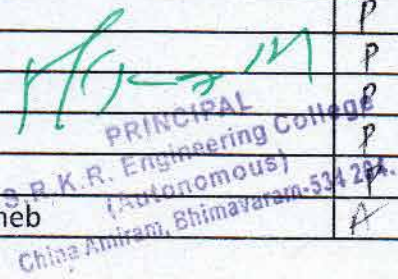 P
P
P
P
P
PRINCIPAL
S.R.K.R. Engineering College
(Autonomous)
China Amiram, Bhimavaram-534 204.
neb A